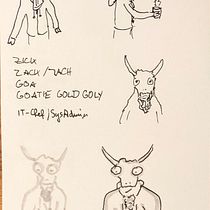 ZICK
ZACK / ZACH
GOA
GOATIE GOLD GOLY
IT-Chef/SysAdmin